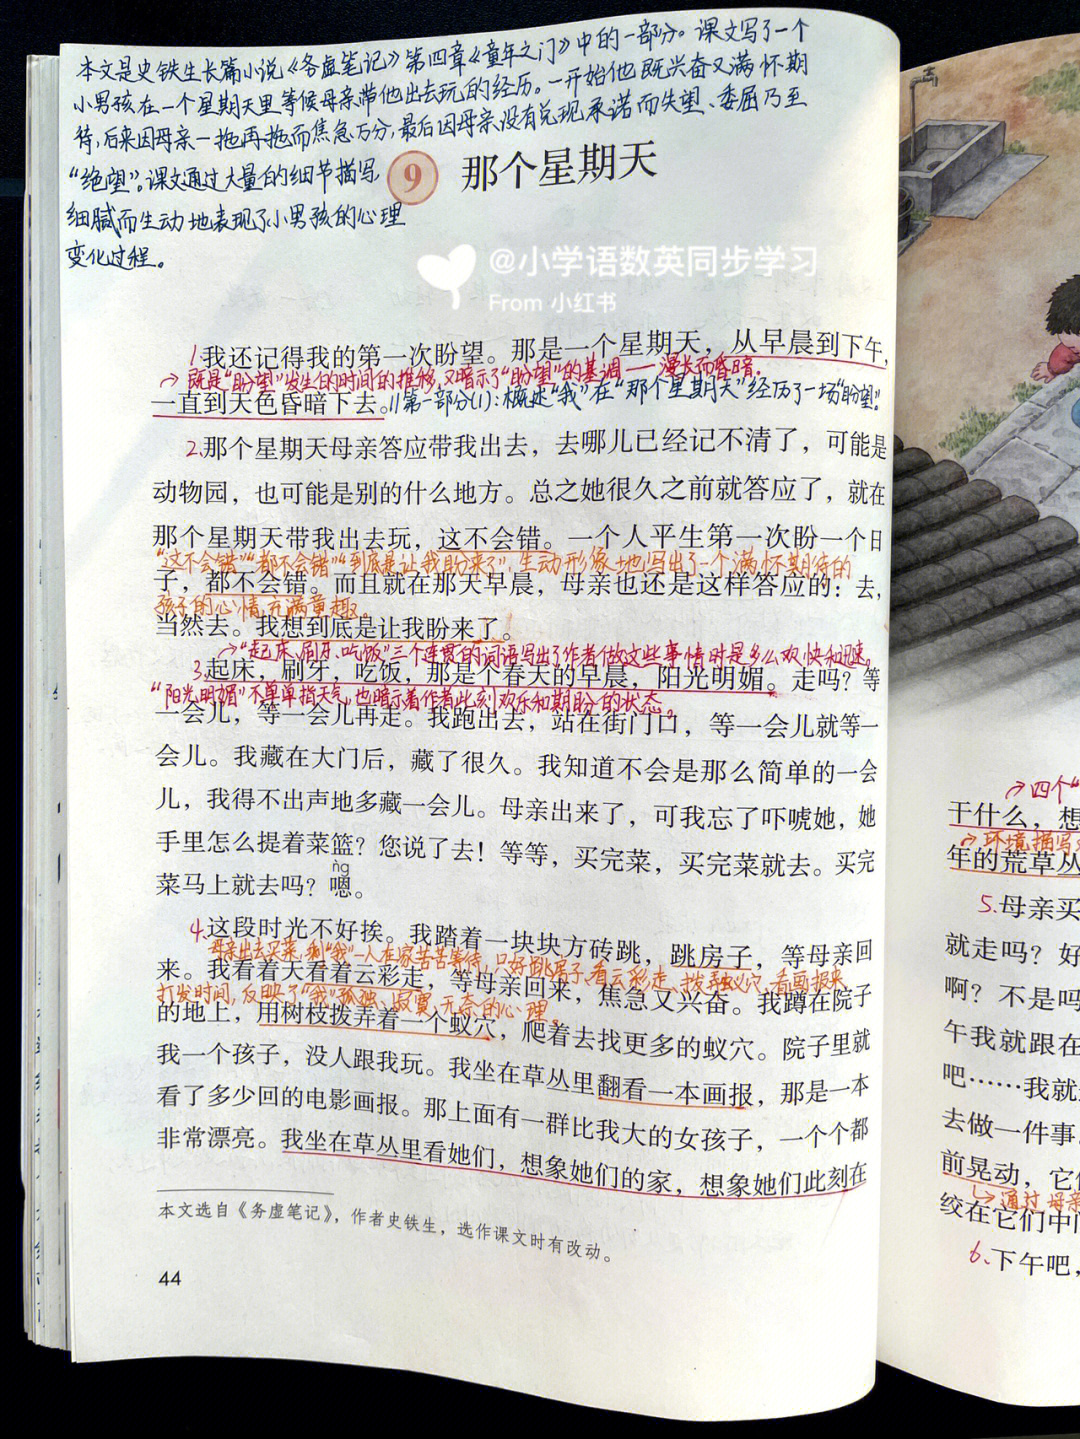 本文是史铁生长篇小说《务虚笔记》第四章《童年之门》中的一部分。课文写了一个
小男孩在一个星期天里等候母亲带他出去玩的经历。一开始他既兴奋又满怀期
待,后来因母亲一拖再拖而焦急万分,最后因母亲没有兑现承诺而失望、委屈乃至
“绝望”。课文通过大量的细节描写,
细腻而生动地表现了小男孩的心理
变化过程。
9 那个星期天
@小学语数英同步学习
From 小红书
1.我还记得我的第一次盼望。那是一个星期天，从早晨到下午，
既是“盼望”发生的时间的推移,又暗示了“盼望”的基调——漫长而昏暗.
一直到天色昏暗下去。//第一部分(1):概述“我”在“那个星期天”经历了一场“盼望”.
2.那个星期天母亲答应带我出去，去哪儿已经记不清了，可能是
动物园，也可能是别的什么地方。总之她很久之前就答应了，就在
那个星期天带我出去玩，这不会错。一个人平生第一次盼一个日
“这不会错”“都不会错”“到底是让我盼来了”,生动形象地写出了一个满怀期待的
子，都不会错。而且就在那天早晨，母亲也还是这样答应的：去，
孩子的心情,充满童趣。
当然去。我想到底是让我盼来了。
“起床、刷牙、吃饭”三个连贯的词语写出了作者做这些事情时是多么欢快和迅速。
3.起床，刷牙，吃饭，那是个春天的早晨，阳光明媚。走吗？等
“阳光明媚”不单单指天气,也暗示着作者此刻欢乐和期盼的状态。
一会儿，等一会儿再走。我跑出去，站在街门口，等一会儿就等一
会儿。我藏在大门后，藏了很久。我知道不会是那么简单的一会
儿，我得不出声地多藏一会儿。母亲出来了，可我忘了吓唬她，她
手里怎么提着菜篮？您说了去！等等，买完菜，买完菜就去。买完
ǹg
菜马上就去吗？嗯。
4.这段时光不好挨。我踏着一块块方砖跳，跳房子，等母亲回
母亲出去买菜,剩“我”一人在家苦苦等待,只好跳房子、看云彩走、拨弄蚁穴、看画报来
来。我看着天看着云彩走，等母亲回来，焦急又兴奋。我蹲在院子
打发时间,反映了“我”孤独、寂寞、无奈的心理。
的地上，用树枝拨弄着一个蚁穴，爬着去找更多的蚁穴。院子里就
我一个孩子，没人跟我玩。我坐在草丛里翻看一本画报，那是一本
看了多少回的电影画报。那上面有一群比我大的女孩子，一个个都
非常漂亮。我坐在草丛里看她们，想象她们的家，想象她们此刻在
本文选自《务虚笔记》，作者史铁生，选作课文时有改动。
44
四个“
干什么，想
环境描写
年的荒草丛
5.母亲买
就走吗？好
啊？不是吗
午我就跟在
吧……我就
去做一件事
前晃动，它
通过母亲
绞在它们中间
6.下午吧，